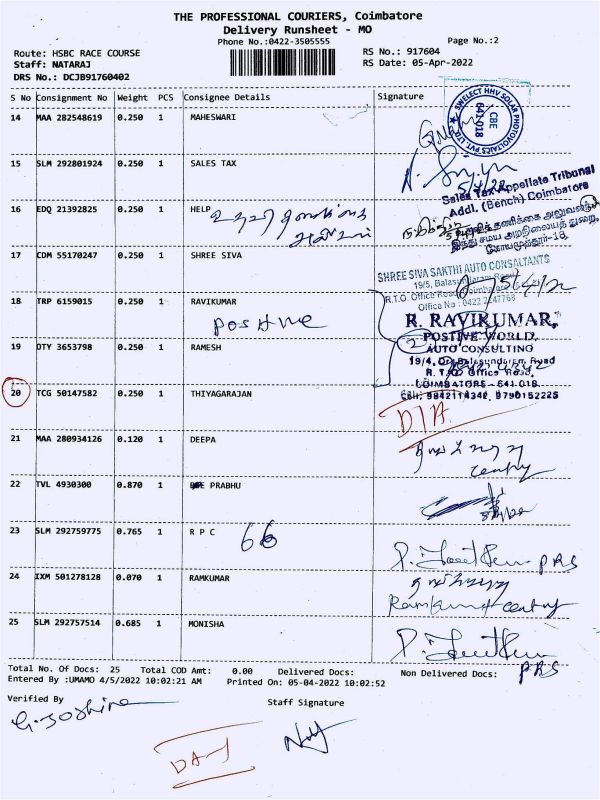 THE PROFESSIONAL COURIERS, Coimbatore
Delivery Runsheet - MO
Phone No.:0422-3505555
Page No.:2
Route: HSBC RACE COURSE
RS No.: 917604
Staff: NATARAJ
RS Date: 05-Apr-2022
DRS No.: DCJB91760402
S No Consignment No Weight PCS Consignee Details Signature
14 MAA 282548619 0.250 1 MAHESWARI
SWELECT HHV SOLAR PHOTOVOLTAICS PVT LTD
CBE
641-018
15 SLM 292801924 0.250 1 SALES TAX
5/4/22
Sales Tax Appellate Tribunal
Addl. (Bench) Coimbatore
16 EDQ 21392825 0.250 1 HELP
இந்து சமய அறநிலையத் துறை,
கோயமுத்தூர்-18.
17 CDM 55170247 0.250 1 SHREE SIVA
SHREE SIVA SAKTHI AUTO CONSULTANTS
19/5, Balasundaram Road
R.T.O. Office Road, Coimbatore
Office No : 0422 2247768
18 TRP 6159015 0.250 1 RAVIKUMAR
Positive
R. RAVIKUMAR,
POSTIVE WORLD,
AUTO CONSULTING
19 DTY 3653798 0.250 1 RAMESH
2
19/4, Dr. Balasundaram Road
R.T.O Office Road,
COIMBATORE - 641 018
Cell: 9842114342, 9790152225
20 TCG 50147582 0.250 1 THIYAGARAJAN
D/A
21 MAA 280934126 0.120 1 DEEPA
Century
22 TVL 4930300 0.870 1 PRABHU
23 SLM 292759775 0.765 1 R P C
66
PRS
24 IXM 501278128 0.070 1 RAMKUMAR
Ramkumar century
25 SLM 292757514 0.685 1 MONISHA
PRS
Total No. Of Docs: 25 Total COD Amt: 0.00 Delivered Docs: Non Delivered Docs:
Entered By :UMAMO 4/5/2022 10:02:21 AM Printed On: 05-04-2022 10:02:52
Verified By
Staff Signature
G. Joshina
DA-1